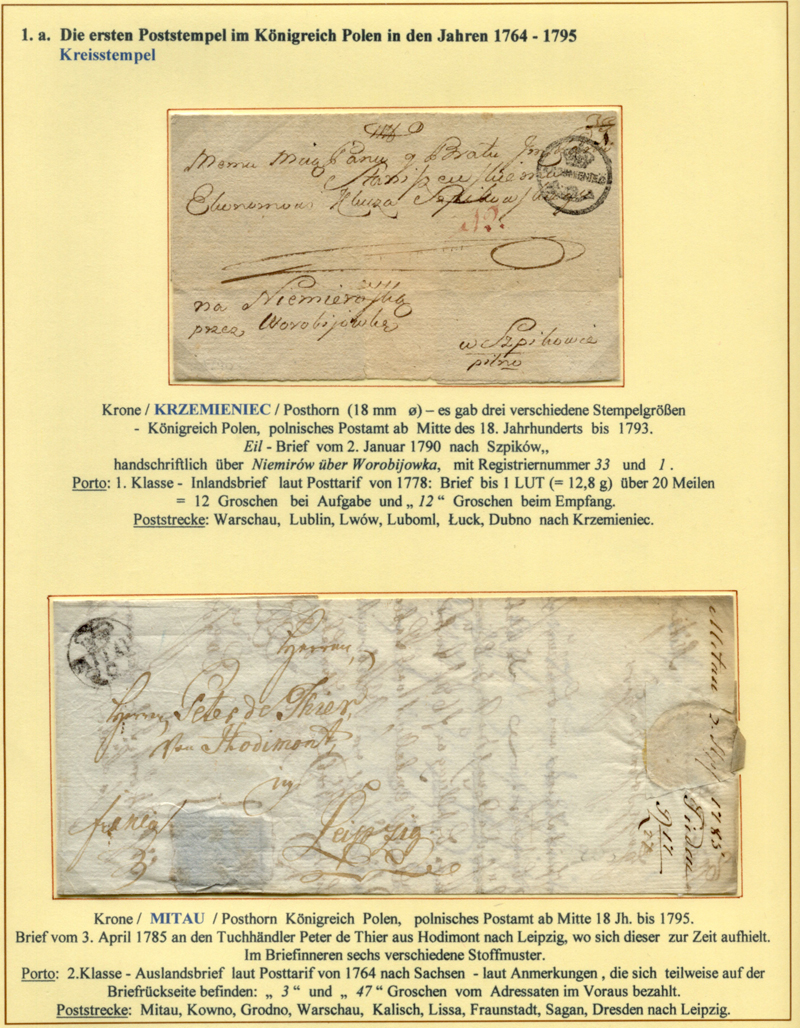 1. a. Die ersten Poststempel im Königreich Polen in den Jahren 1764 - 1795
Kreisstempel
Memu
Panu y Bratu
Szpikow
12.
na Niemierow
przez Worobijówkę
w Szpikowie
pilno
Krone / KRZEMIENIEC / Posthorn (18 mm ø) – es gab drei verschiedene Stempelgrößen
- Königreich Polen, polnisches Postamt ab Mitte des 18. Jahrhunderts bis 1793.
Eil - Brief vom 2. Januar 1790 nach Szpików,,
handschriftlich über Niemirów über Worobijowka, mit Registriernummer 33 und 1 .
Porto: 1. Klasse - Inlandsbrief laut Posttarif von 1778: Brief bis 1 LUT (= 12,8 g) über 20 Meilen
= 12 Groschen bei Aufgabe und „ 12 “ Groschen beim Empfang.
Poststrecke: Warschau, Lublin, Lwów, Luboml, Łuck, Dubno nach Krzemieniec.
Herren,
Herrn Peter de Thier,
von Hodimont,
in
Leipzig
3
Mitau
1785
Krone / MITAU / Posthorn Königreich Polen, polnisches Postamt ab Mitte 18 Jh. bis 1795.
Brief vom 3. April 1785 an den Tuchhändler Peter de Thier aus Hodimont nach Leipzig, wo sich dieser zur Zeit aufhielt.
Im Briefinneren sechs verschiedene Stoffmuster.
Porto: 2.Klasse - Auslandsbrief laut Posttarif von 1764 nach Sachsen - laut Anmerkungen , die sich teilweise auf der
Briefrückseite befinden: „ 3 “ und „ 47 “ Groschen vom Adressaten im Voraus bezahlt.
Poststrecke: Mitau, Kowno, Grodno, Warschau, Kalisch, Lissa, Fraunstadt, Sagan, Dresden nach Leipzig.